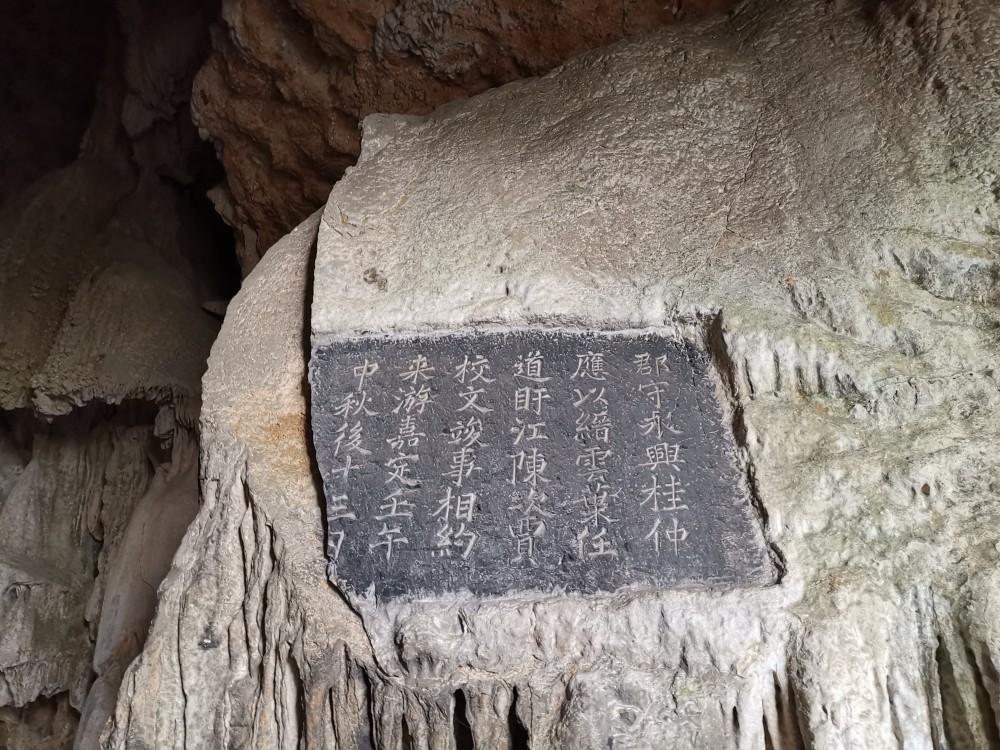 郡守永興桂仲
應以縉雲葉任
道盱江陳次賈
校文竣事相約
来游嘉定壬午
中秋後十三夕